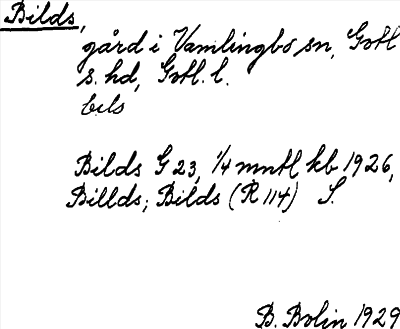 Bilds,
gård i Vamlingbo sn, Gotl
s. hd, Gotl. l.
bils
Bilds G 23, 1/4 mntl kb 1926,
Billds; Bilds (R 114) S.
B. Bolin 1929